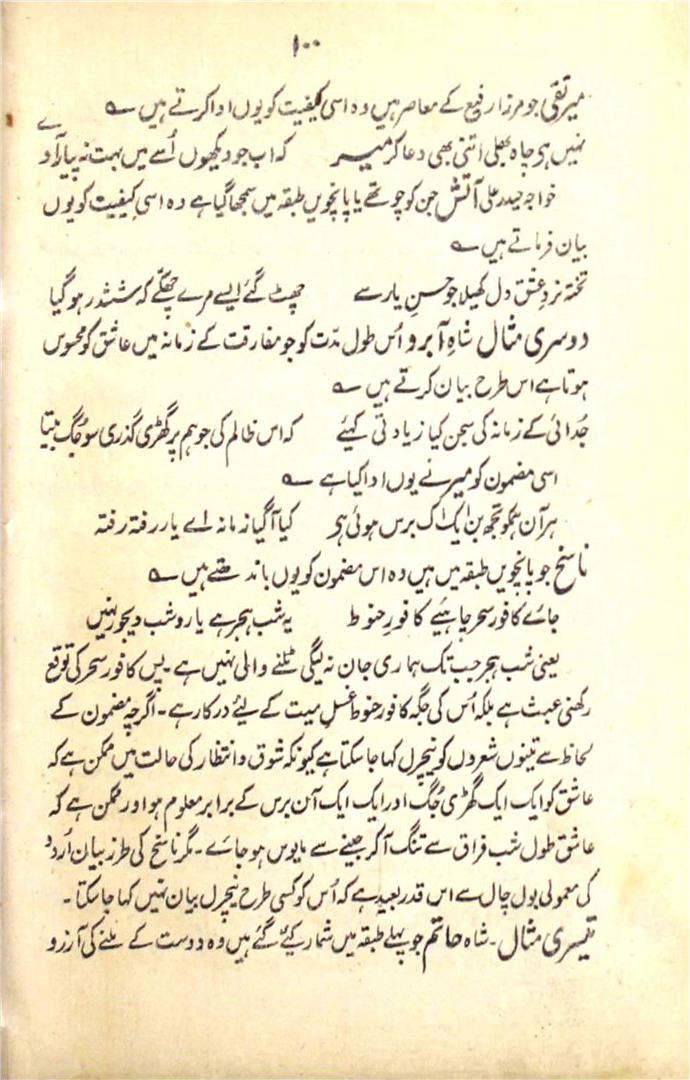 ۱۰۰
میر تقی جو مرزا رفیع کے معاصر ہیں وہ اسی کیفیت کو یوں ادا کرتے ہیں ؎
نہیں ہو چاہ بھلی اتنی بھی دعا کر میر کہ اب جو دیکھوں اُسے میں بہت نہ پیار آوے
خواجہ حیدر علی آتش جن کو چوتھے یا پانچویں طبقہ میں سمجھا گیا ہے وہ اسی کیفیت کو یوں
بیان فرماتے ہیں ؎
تختۂ نردِ عشق دل کھیلا جو حسنِ یار سے چھٹ گئے ایسے مرے چھکے کہ ششدر ہو گیا
دوسری مثال شاہ آبرو اُس طول مدّت کو جو مفارقت کے زمانہ میں عاشق کو محسوس
ہوتا ہے اس طرح بیان کرتے ہیں ؎
جُدائی کے زمانہ کی سجن کیا زیادتی کہیئے کہ اس ظالم کی جو ہم پر گھڑی گذری سو جُگ بیتا
اسی مضمون کو میر نے یوں ادا کیا ہے ؎
ہر آن ہمکو تجھ بن ایک اک برس ہوئی ہی کیا آ گیا زمانہ اے یار رفتہ رفتہ
ناسخ جو پانچویں طبقہ میں ہیں وہ اس مضمون کو یوں باندھتے ہیں ؎
جائے کافور سحر چاہیئے کافورِ حنوط یہ شب ہجر ہے یارو شب دیجور نہیں
یعنی شب ہجر جب تک ہماری جان نہ لیگی ٹلنے والی نہیں ہے۔ پس کافور سحر کی توقع
رکھنی عبث ہے بلکہ اُس کی جگہ کافور حنوط غسلِ میت کے لیئے درکار ہے۔ اگرچہ مضمون کے
لحاظ سے تینوں شعروں کو نیچرل کہا جا سکتا ہے کیونکہ شوق و انتظار کی حالت میں ممکن ہے کہ
عاشق کو ایک ایک گھڑی جُگ اور ایک ایک آن برس کے برابر معلوم ہو اور ممکن ہے کہ
عاشق طول شب فراق سے تنگ آ کر جینے سے مایوس ہو جائے۔ مگر ناسخ کی طرز بیان اُردو
کی معمولی بول چال سے اس قدر بعید ہے کہ اُس کو کسی طرح نیچرل بیان نہیں کہا جا سکتا۔
تیسری مثال۔ شاہ حاتم جو پہلے طبقہ میں شمار کیئے گئے ہیں وہ دوست کے ملنے کی آرزو